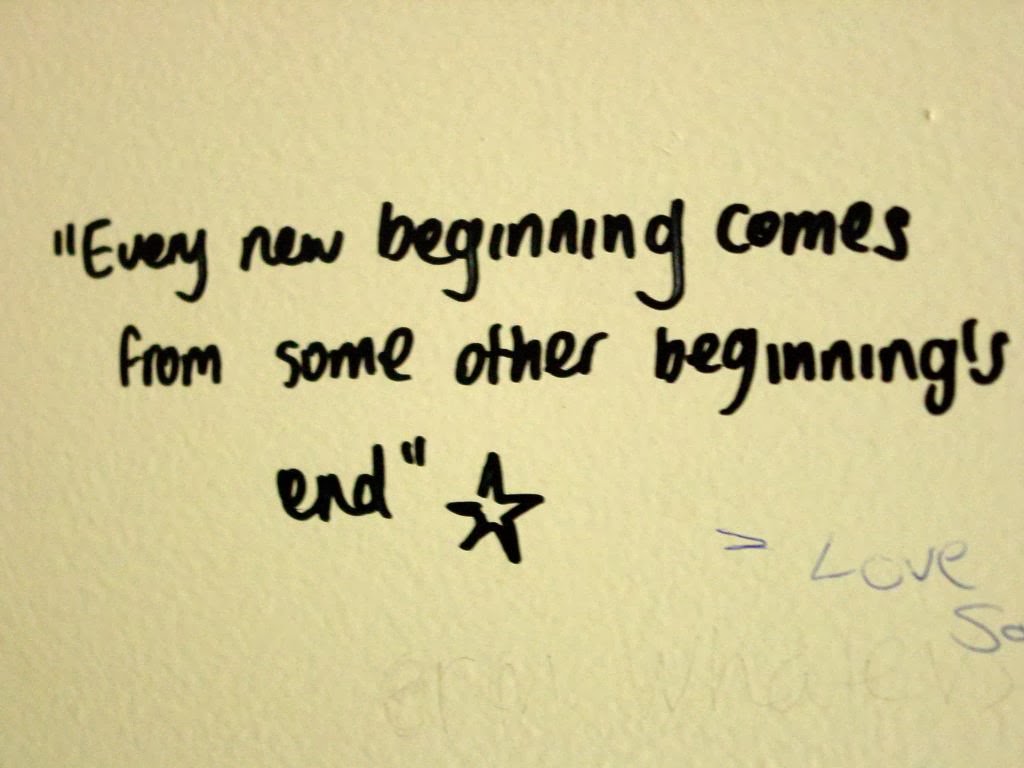 "Every new beginning comes
from some other beginning's
end"
> Love